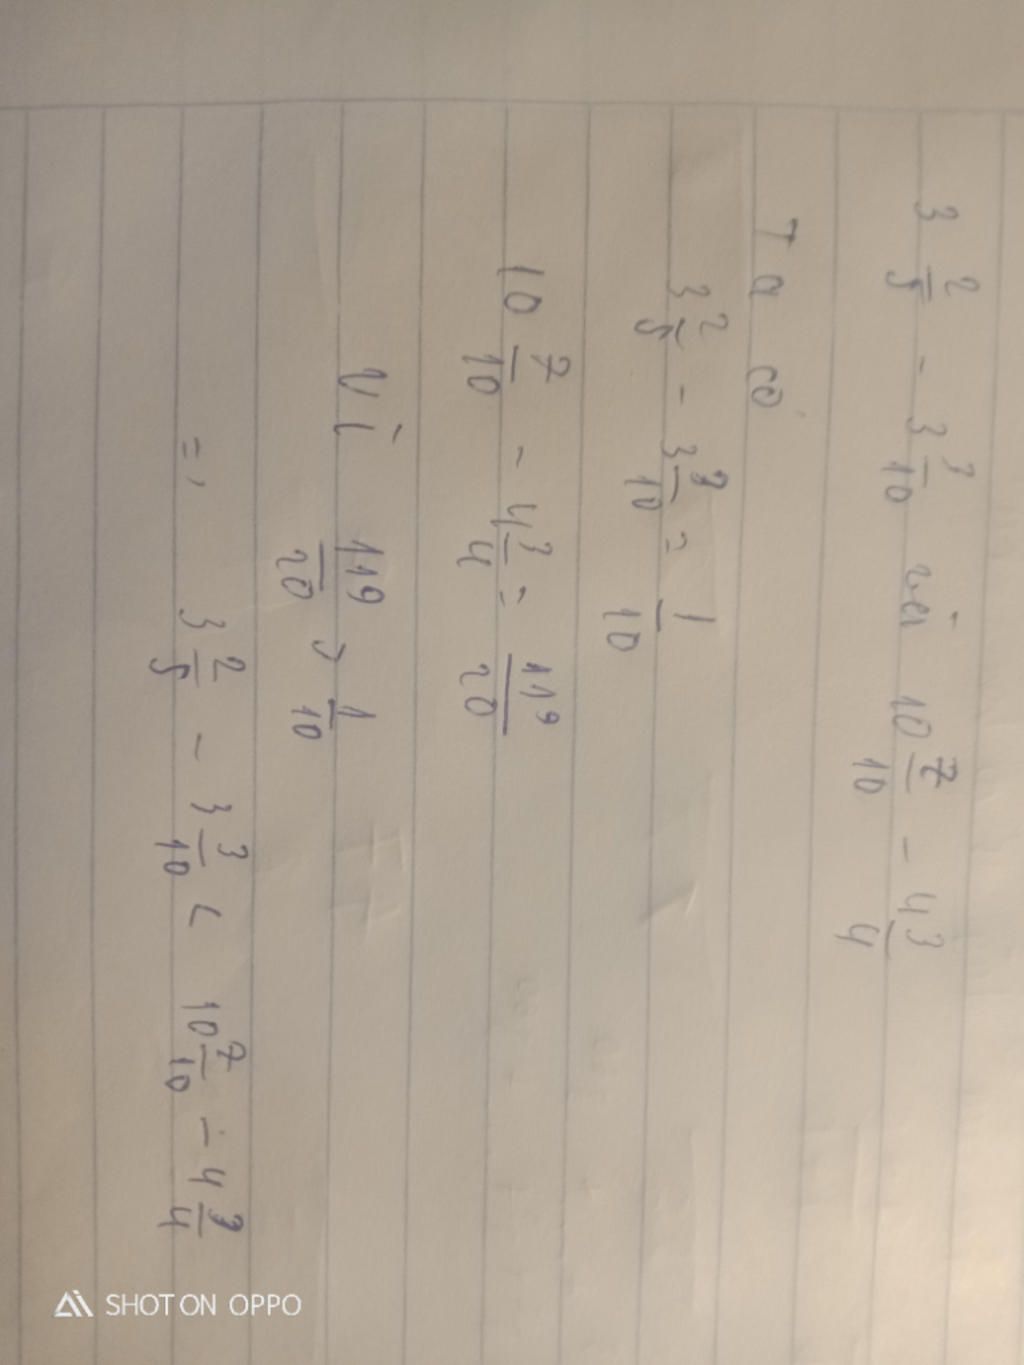 3 2/5 - 3 3/10 và 10 7/10 - 4 3/4
Ta có
3 2/5 - 3 3/10 = 1/10
10 7/10 - 4 3/4 = 119/20
Vì 119/20 > 1/10
=, 3 2/5 - 3 3/10 < 10 7/10 - 4 3/4
SHOT ON OPPO